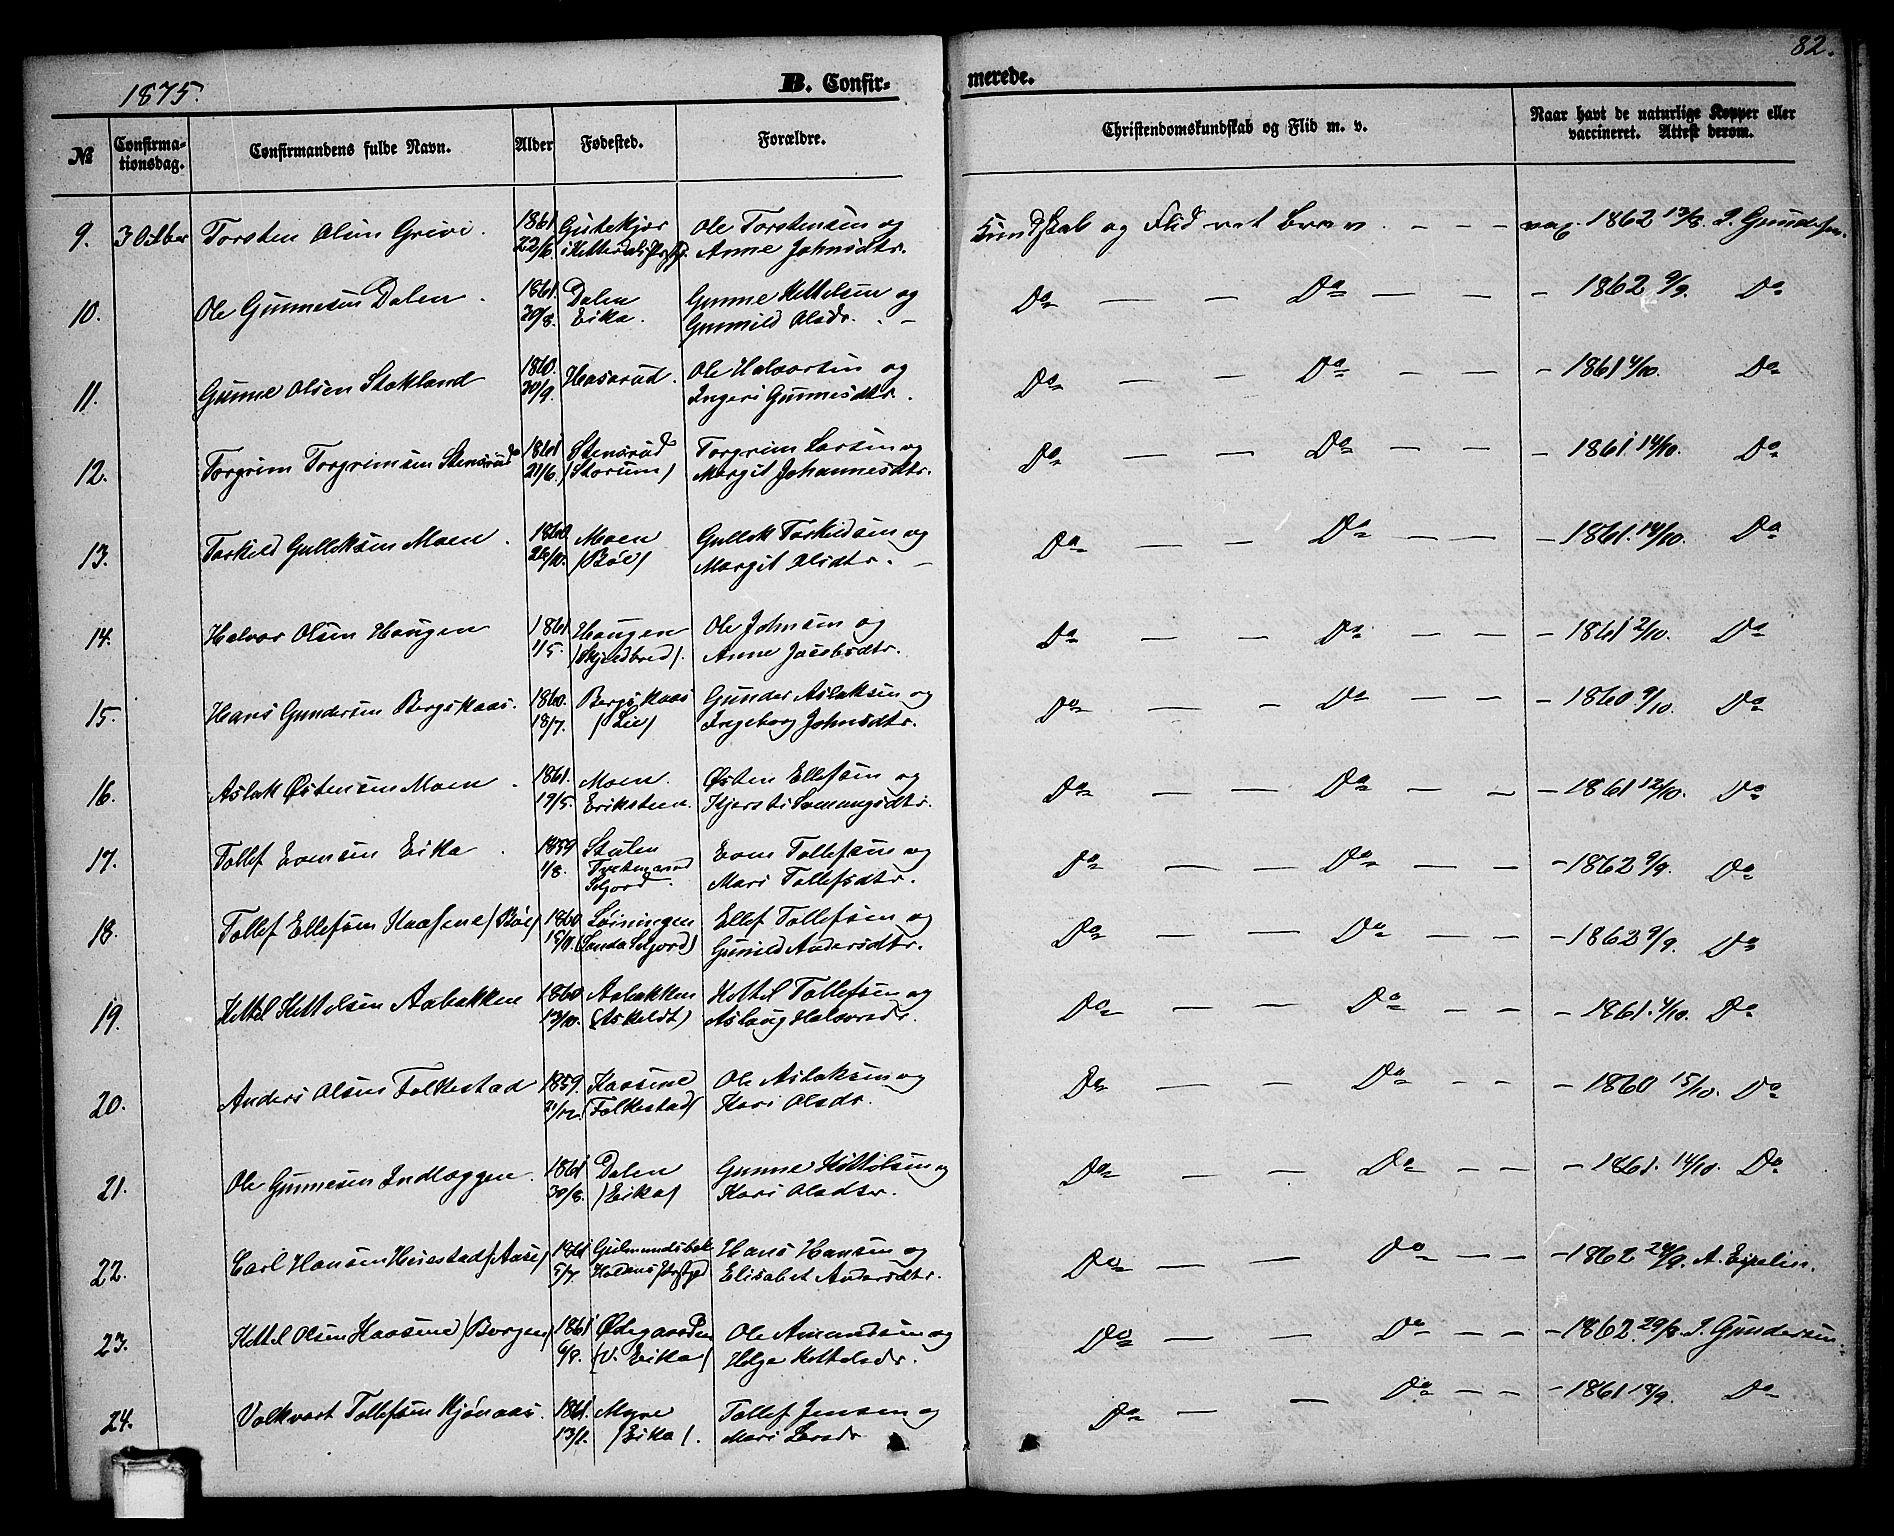 1875.
B. Confir-
merede.
82.
No
Confirma-
tionsdag.
Confirmandens fulde Navn.
Alder
Fødested.
Forældre.
Christendomskundskab og Flid m. v.
Naar havt de naturlige Kopper eller
vaccineret. Attest derom.
9. 3 Octber Torsten Olsen Grivi. 1861 Ole Torstensen og Kundskab og Flid - - - vac. 1862 13/8 Gundersen
22/6. Anne Johnsdtr.
10. Ole Gunnesen Dalen. 1861. Dalen Gunne Kittelsen og Do — - Do - - - 1862 9/9. Do
30/8. Eika. Gunnild Olsdr. -
11. Gunne Olsen Stokland 1860. Haserud. Ole Halvorsen og Do — — Do - - - 1861 4/10. Do
30/9. Ingeri Gunnesdtr.
12. Torgrim Torgrimsen Stensrud 1861 Stensrud Torgrim Larsen og Do — — Do - - - 1861 14/10. Do
21/6. /Storum/ Margit Johannesdtr.
13. Torkild Gulleksen Moen. 1860 Moen Gullek Torkildsen og Do — — Do - - - 1861. 14/10. Do
26/10. /Bøe/ Margit Olsdtr. -
14. Halvor Olsen Haugen 1861 Haugen Ole Johnsen og Do — — Do - - - 1861 2/10. Do
1/5. /Skjeldbred/. Anne Jacobsdtr.
15. Hans Gundersen Bergskaas. 1860. Bergskaas Gunder Aslaksen og Do — - Do - - - 1860 9/10. Do
18/7. /Lie/ Ingeborg Johnsdtr.
16. Aslak Østensen Moen. 1861. Moen. Østen Ellefsen og Do — — Do - - - 1861 12/10. Do
19/5. Eriksteen. Kjersti Sveinungsdtr.
17. Tollef Evensen Eika. 1859 Even Tollefsen og Do — — Do - - - 1862 9/9. Do
1/8. Mari Tollefsdtr.
Seljord.
18. Tollef Ellefsen Kaasene /Bøe/ 1860 Ellef Tollefsen og Do — — Do - - - 1862 9/9. Do
(Sanda Seljord) Gunild Andersdtr.
19. Kittil Kittelsen Aabakken 1860 Aabakken Kittil Tollefsen og Do — — Do - - - 1861. 4/10. Do
13/10. (Askeldt) Aslaug Halvorsdr.
20. Anders Olsen Folkestad 1859. Kaasene Ole Aslaksen og Do — — Do - - - 1860 15/10. Do
31/12. /Folkestad/ Kari Olsdr.
21. Ole Gunnesen Indlæggen. 1861 Dalen Gunne Kittelsen og Do — — Do - - - 1861. 14/10. Do
30/8. /Eika/ Kari Olsdtr.
22. Carl Hansen Heiestad /Aase/ 1861 Hans Hansen og Do — — Do - - - 1862 A.
5/7 Holdens Prstgd Elisabet Andersdtr.
23. Kittil Olsen Kaasene /Borgen/ 1861 Ødegaarden Ole Amundsen og Do — — Do - - - 1862. 29/8. Gundersen.
6/8. /V. Eika/ Helge Kittelsdr.
24. Volkvart Tollefsen Kjønaas. 1861. Myre Tollef Jensen og Do — — Do - - - 1861 18/9. Do
13/1. /Eika/. Mari Larsdr